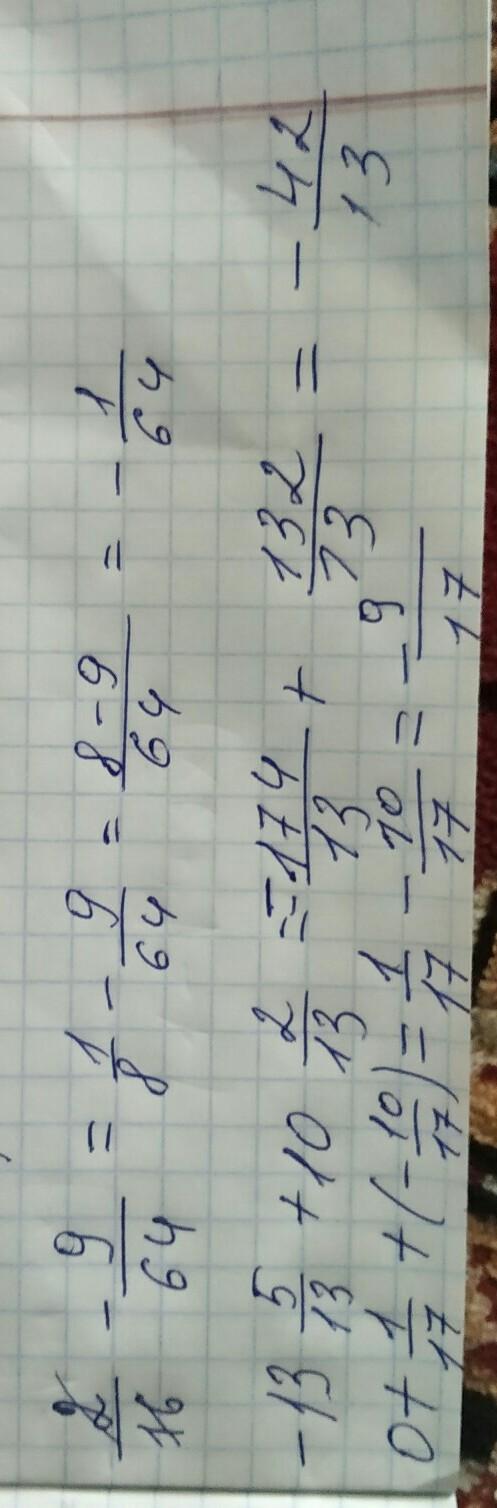 2/16 - 9/64 = 1/8 - 9/64 = (8-9)/64 = - 1/64
-13 5/13 + 10 2/13 = -174/13 + 132/13 = - 42/13
0 + 1/17 + (-10/17) = 1/17 - 10/17 = -9/17